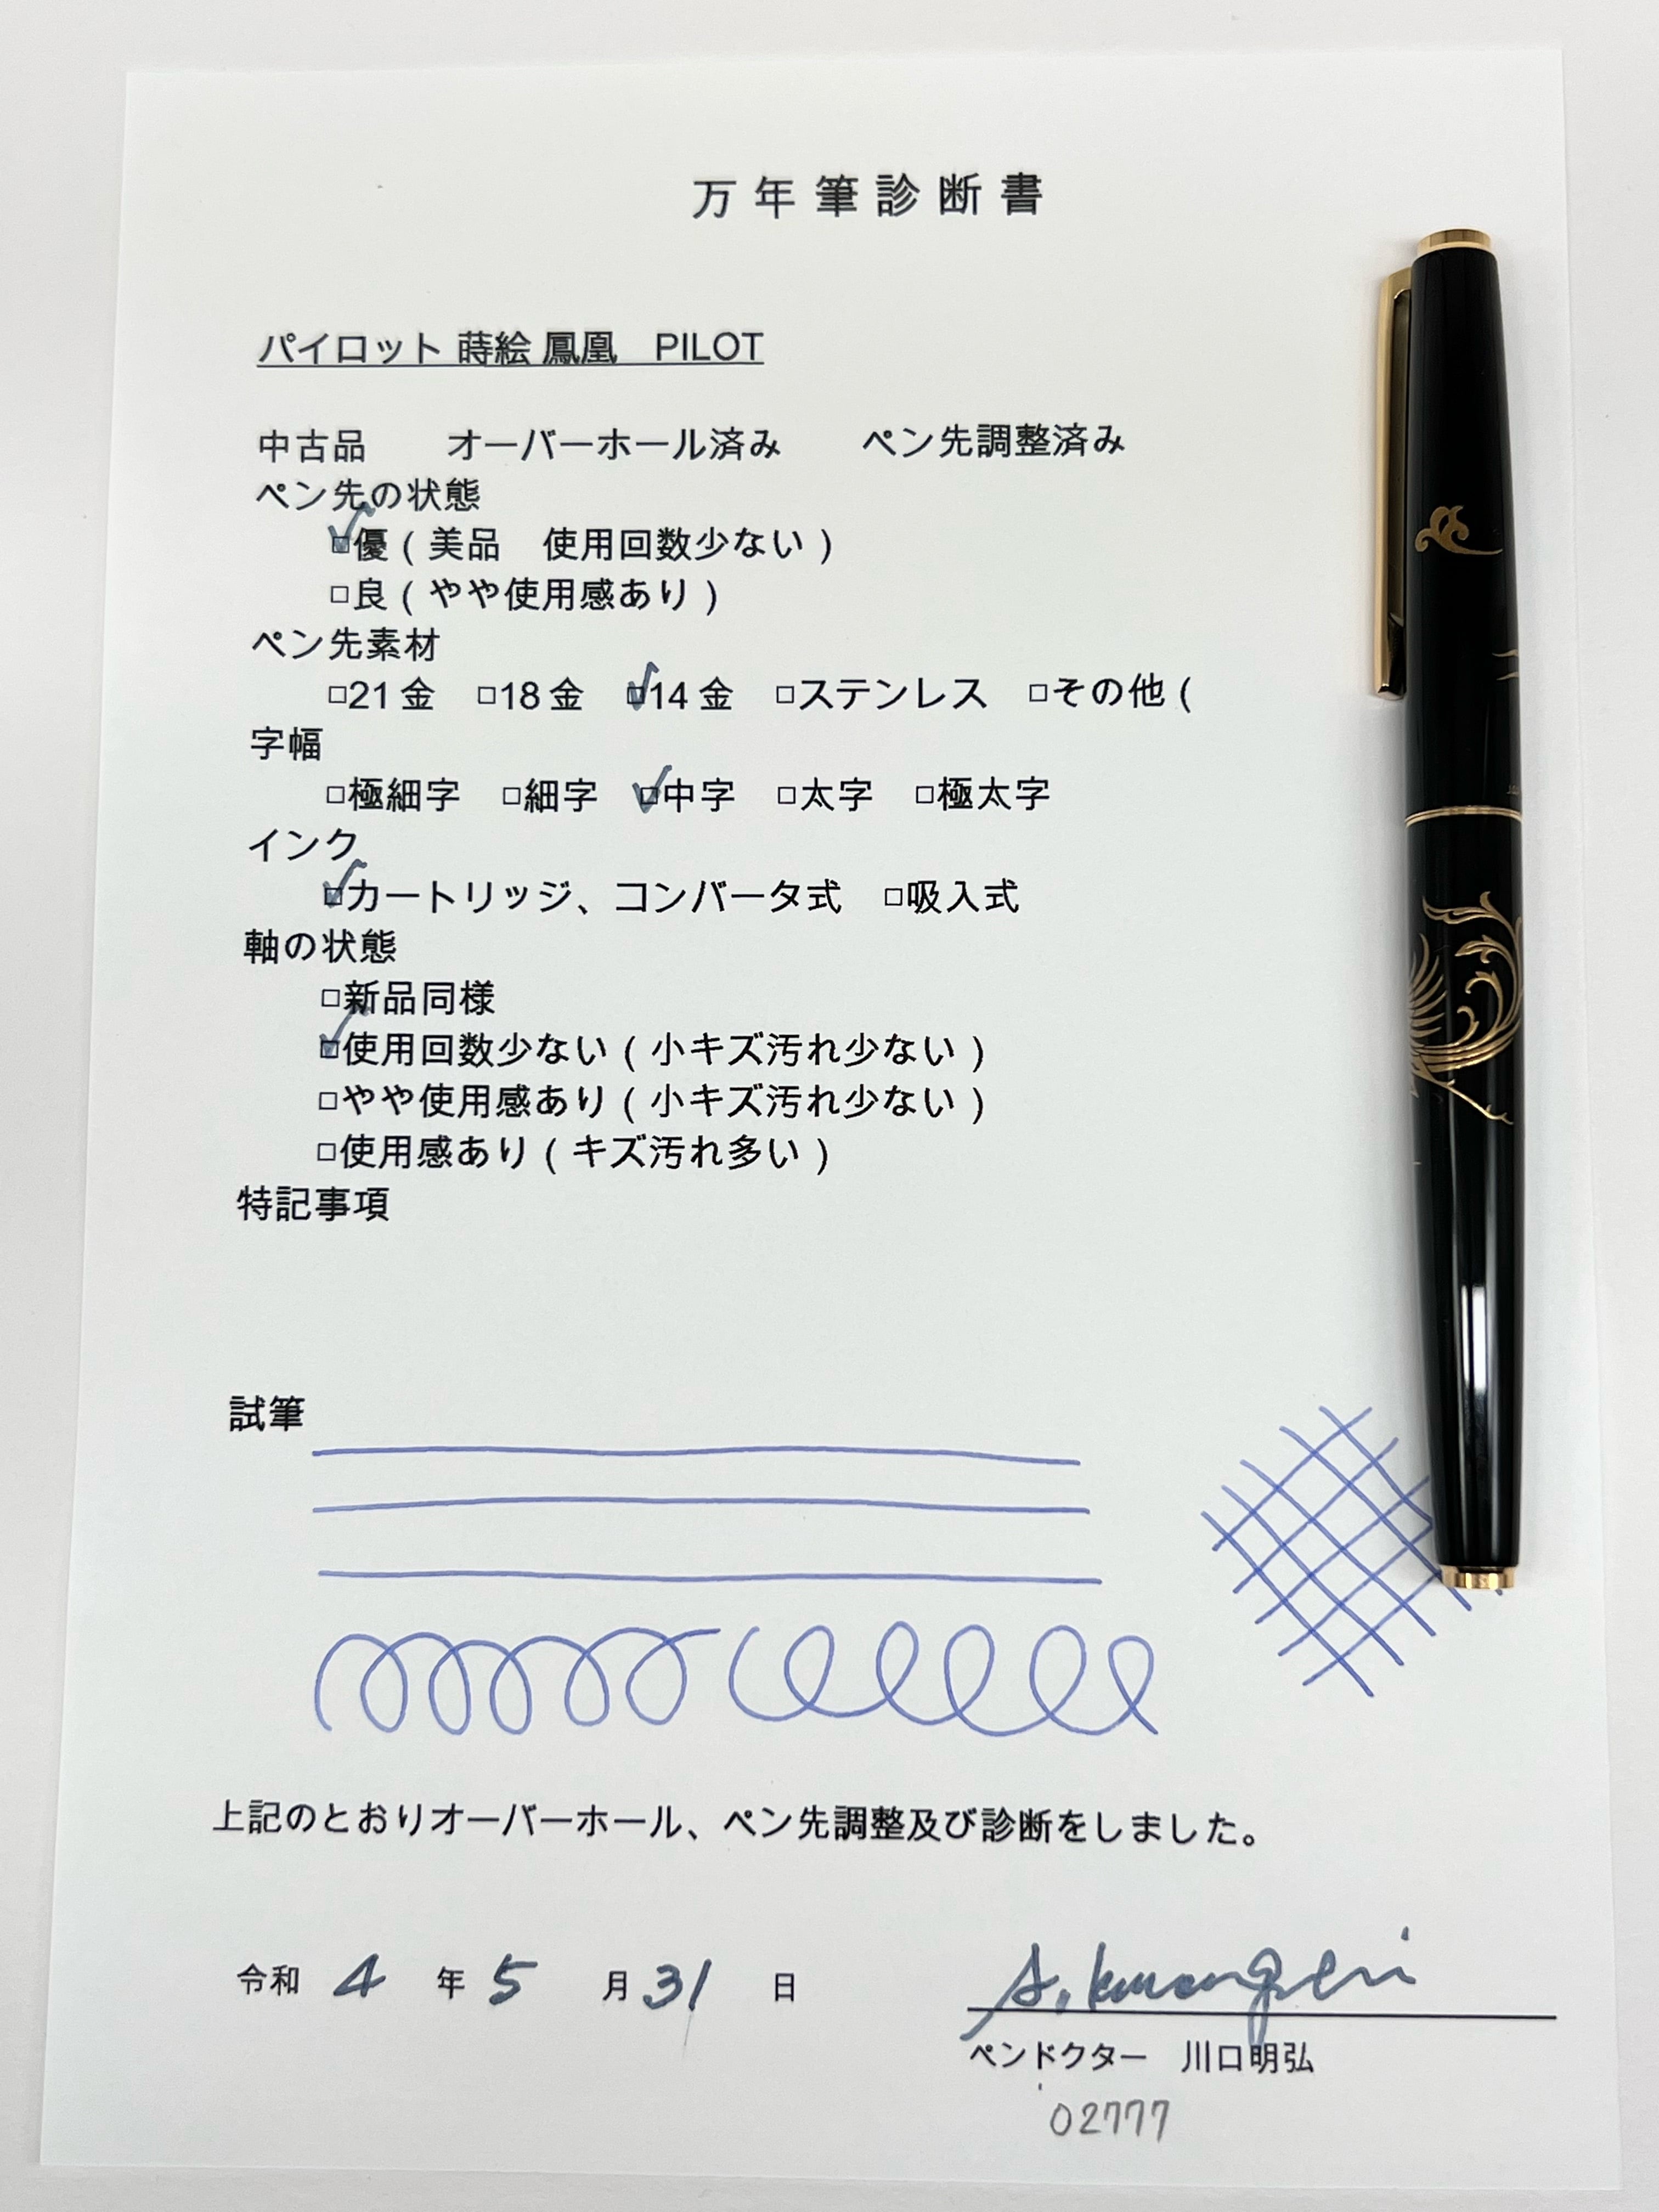 万年筆診断書
パイロット 蒔絵 鳳凰　PILOT
中古品　　オーバーホール済み　　ペン先調整済み
ペン先の状態
☑優（美品　使用回数少ない）
□良（やや使用感あり）
ペン先素材
□21金　□18金　☑14金　□ステンレス　□その他（
字幅
□極細字　□細字　☑中字　□太字　□極太字
インク
☑カートリッジ、コンバータ式　□吸入式
軸の状態
□新品同様
☑使用回数少ない（小キズ汚れ少ない）
□やや使用感あり（小キズ汚れ少ない）
□使用感あり（キズ汚れ多い）
特記事項
試筆
上記のとおりオーバーホール、ペン先調整及び診断をしました。
令和 4 年 5 月 31 日
ペンドクター　川口明弘
02777